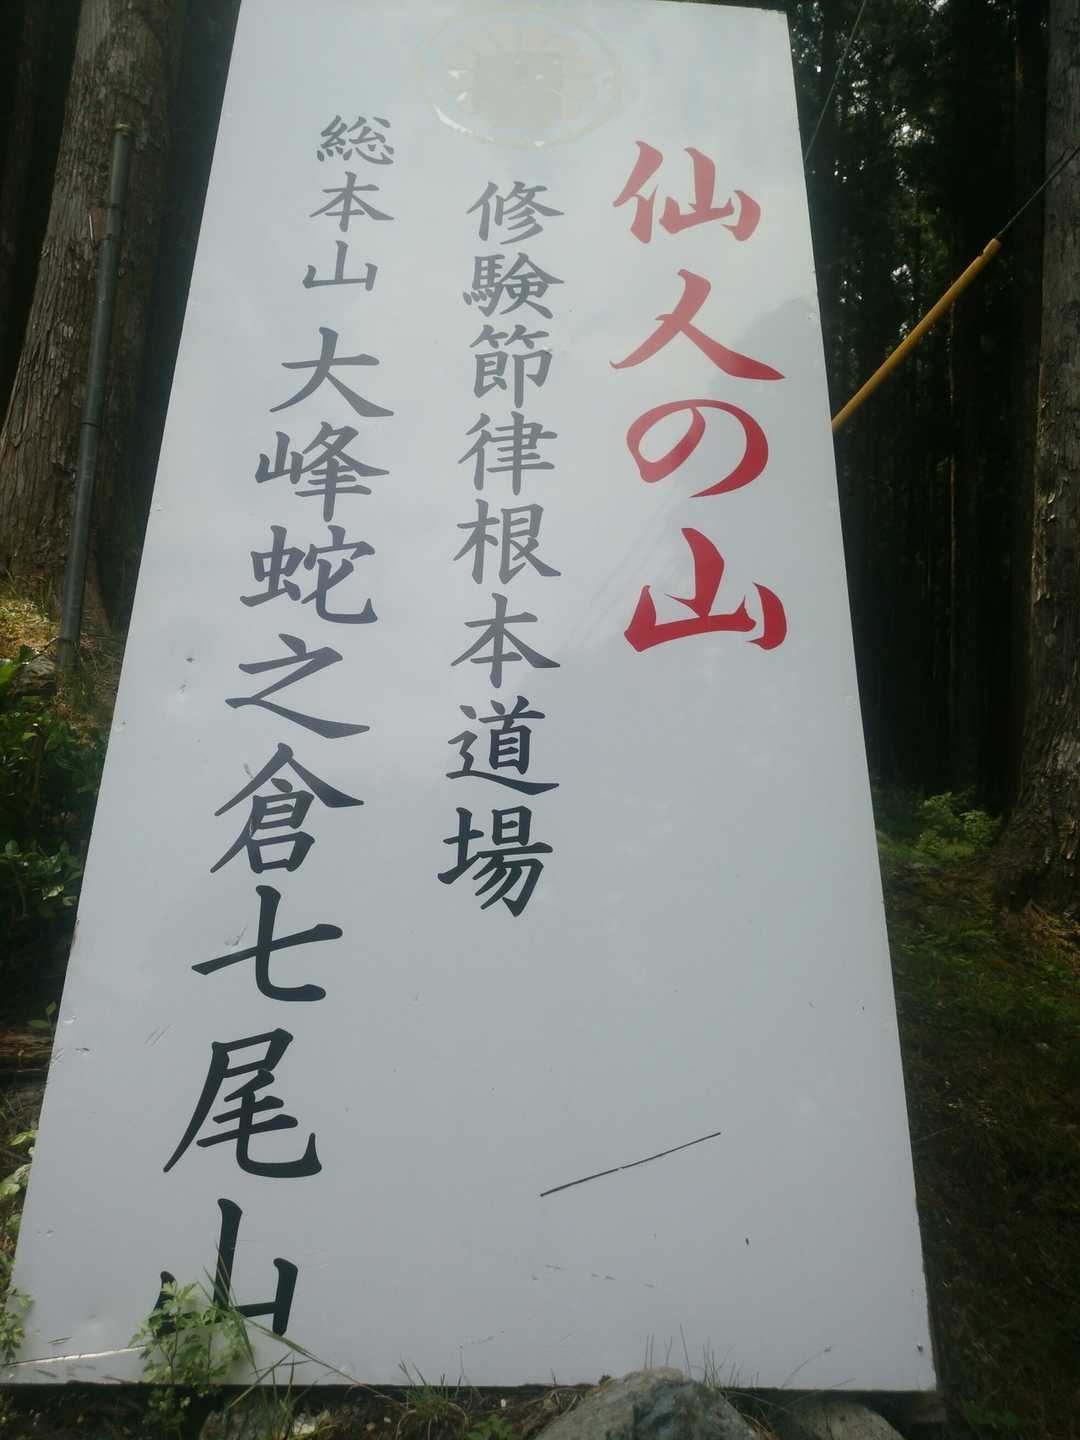 仙人の山
修験節律根本道場
総本山 大峰蛇之倉七尾山